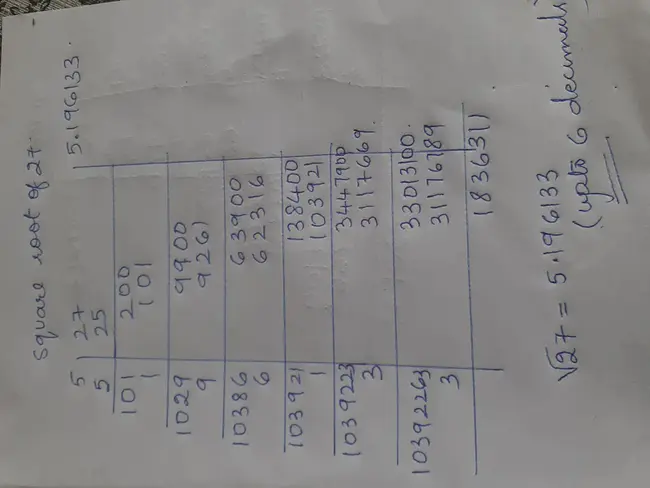 Square root of 27.
5 27 5.196133.
5 25
101 200
1 101
1029 9900
9 9261
10386 63900
6 62316
103921 138400
1 103921
1039223 3447900
3 3117669.
10392263 33013100.
3 31176789
1836311
√27 = 5.196133
(upto 6 decimals)